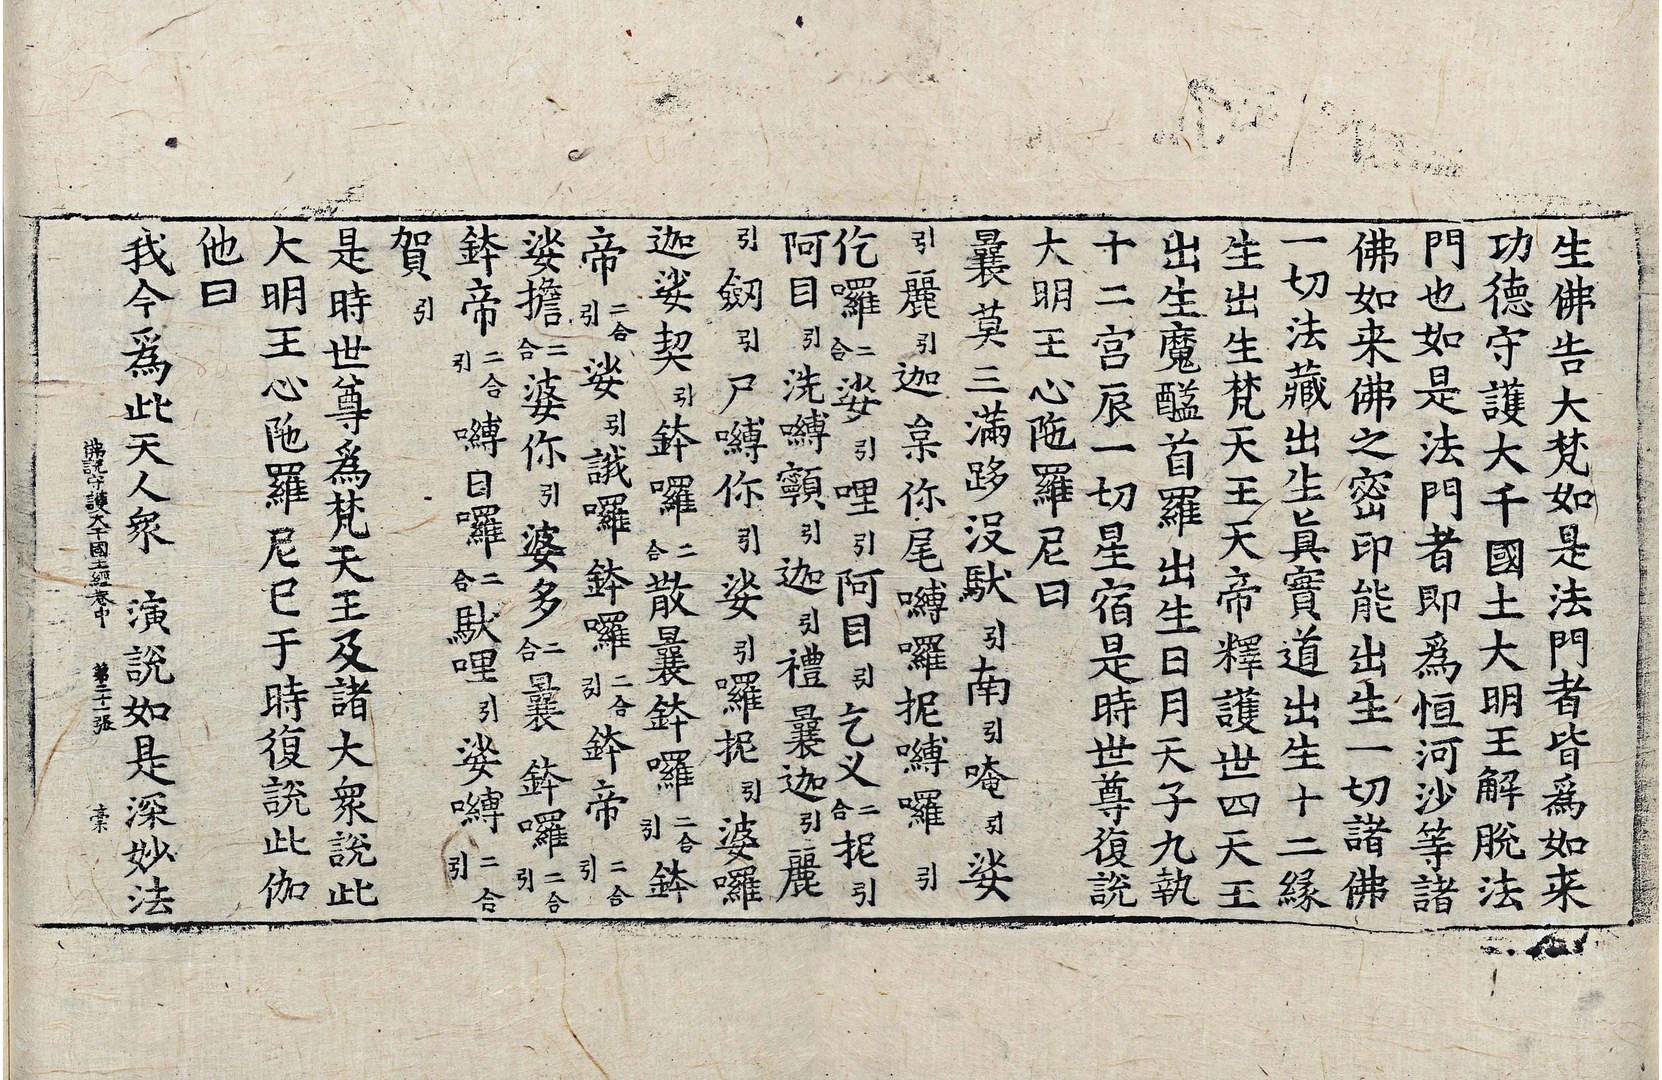 生佛告大梵如是法門者皆爲如来
功德守護大千國土大明王解脫法
門也如是法門者即爲恒河沙等諸
佛如来佛之密印能出生一切諸佛
一切法藏出生眞實道出生十二緣
生出生梵天王天帝釋護世四天王
出生魔醯首羅出生日月天子九執
十二宮辰一切星宿是時世尊復說
大明王心陁羅尼曰
曩莫三滿跢没馱引南引唵引娑
引麗引迦枲你尾嚩囉抳嚩囉引
仡囉二合娑引哩引阿目引乞义二合抳引
阿目引洗嚩顐引迦引禮曩迦引麗
引劔引尸嚩你引娑引囉抳引婆囉
迦娑契引鉢囉二合散曩鉢囉二合引鉢
帝二合引娑引誐囉鉢囉二合引鉢帝引二合
娑擔二合婆你引婆多二合曩鉢囉二合引
鉢帝二合引嚩日囉二合馱哩引娑嚩二合引
賀引
是時世尊爲梵天王及諸大衆說此
大明王心陁羅尼已于時復說此伽
他曰
佛說守護大千國土經卷中 第二十張 槀
我今爲此天人衆 演說如是深妙法